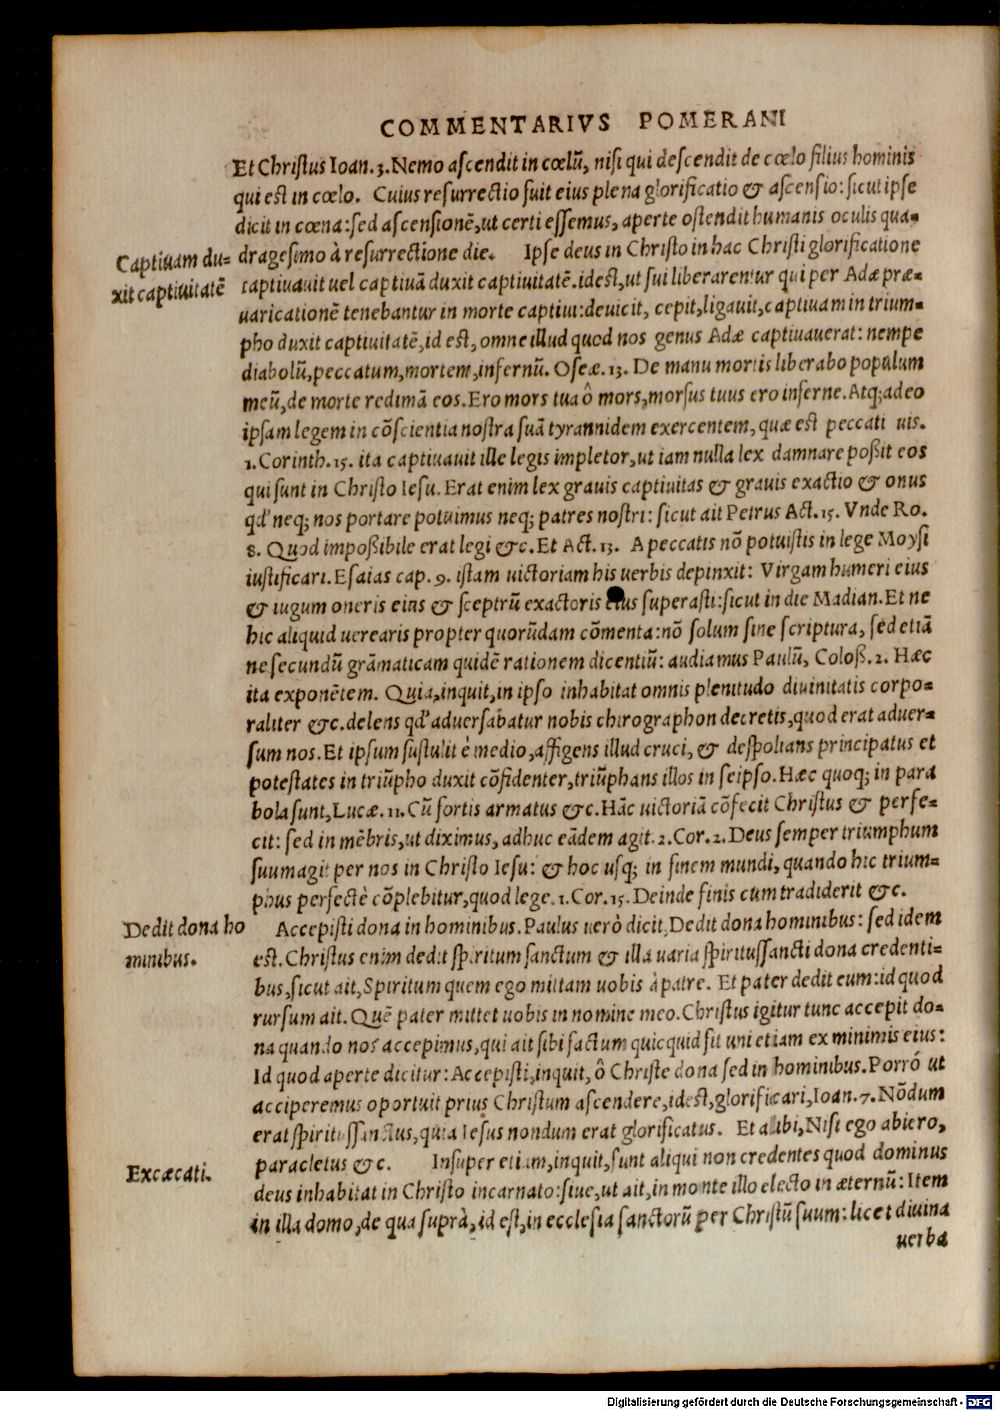 COMMENTARIVS POMERANI
Et Christus Ioan. 3. Nemo ascendit in cœlũ, nisi qui descendit de cœlo filius hominis
qui est in cœlo. Cuius resurrectio fuit eius plena glorificatio & ascensio: sicut ipse
dicit in cœna: sed ascensionẽ, ut certi essemus, aperte ostendit humanis oculis qua-
dragesimo à resurrectione die. Ipse deus in Christo in hac Christi glorificatione
Captiuam du-
xit captiuitatẽ
captiuauit uel captiuã duxit captiuitatẽ. id est, ut sui liberarentur qui per Adæ præ-
uaricationẽ tenebantur in morte captiui: deuicit, cepit, ligauit, captiuam in trium-
pho duxit captiuitatẽ, id est, omne illud quod nos genus Adæ captiuauerat: nempe
diabolũ, peccatum, mortem, infernũ. Oseæ. 13. De manu mortis liberabo populum
meũ, de morte redimã eos. Ero mors tua ô mors, morsus tuus ero inferne. Atq; adeo
ipsam legem in cõscientia nostra suã tyrannidem exercentem, quæ est peccati uis.
1. Corinth. 15. ita captiuauit ille legis impletor, ut iam nulla lex damnare poßit eos
qui sunt in Christo Iesu. Erat enim lex grauis captiuitas & grauis exactio & onus
qd' neq; nos portare potuimus neq; patres nostri: sicut ait Petrus Act. 15. Vnde Ro.
8. Quod impoßibile erat legi &c. Et Act. 13. A peccatis nõ potuistis in lege Moysi
iustificari. Esaias cap. 9. istam uictoriam his uerbis depinxit: Virgam humeri eius
& iugum oneris eius & sceptrũ exactoris eius superasti: sicut in die Madian. Et ne
hic aliquid uerearis propter quorũdam cõmenta: nõ solum sine scriptura, sed etiã
ne secundũ grãmaticam quidẽ rationem dicentiũ: audiamus Paulũ, Coloß. 2. Hæc
ita exponẽtem. Quia, inquit, in ipso inhabitat omnis plenitudo diuinitatis corpo-
raliter &c. delens qd' aduersabatur nobis chirographon decretis, quod erat aduer-
sum nos. Et ipsum sustulit è medio, affigens illud cruci, & despolians principatus et
potestates in triũpho duxit cõfidenter, triũphans illos in seipso. Hæc quoq; in para
bola sunt, Lucæ. 11. Cũ fortis armatus &c. Hãc uictoriã cõfecit Christus & perfe-
cit: sed in mẽbris, ut diximus, adhuc eãdem agit. 2. Cor. 2. Deus semper triumphum
suum agit per nos in Christo Iesu: & hoc usq; in finem mundi, quando hic trium-
phus perfectè cõplebitur, quod lege. 1. Cor. 15. Deinde finis cum tradiderit &c.
Dedit dona ho
minibus.
Accepisti dona in hominibus. Paulus uerò dicit, Dedit dona hominibus: sed idem
est. Christus enim dedit spiritum sanctum & illa uaria spiritussancti dona credenti-
bus, sicut ait, Spiritum quem ego mittam uobis à patre. Et pater dedit eum: id quod
rursum ait. Quẽ pater mittet uobis in nomine meo. Christus igitur tunc accepit do-
na quando nos accepimus, qui ait sibi factum quicquid fit uni etiam ex minimis eius:
Id quod aperte dicitur: Accepisti, inquit, ô Christe dona sed in hominibus. Porró ut
acciperemus oportuit prius Christum ascendere, id est, glorificari, Ioan. 7. Nõdum
erat spiritussanctus, quia Iesus nondum erat glorificatus. Et alibi, Nisi ego abiero,
Excæcati.
paracletus &c. Insuper etiam, inquit, sunt aliqui non credentes quod dominus
deus inhabitat in Christo incarnato: siue, ut ait, in monte illo electo in æternũ: Item
in illa domo, de qua suprà, id est, in ecclesia sanctorũ per Christũ suum: licet diuina
uerba
Digitalisierung gefördert durch die Deutsche Forschungsgemeinschaft - DFG